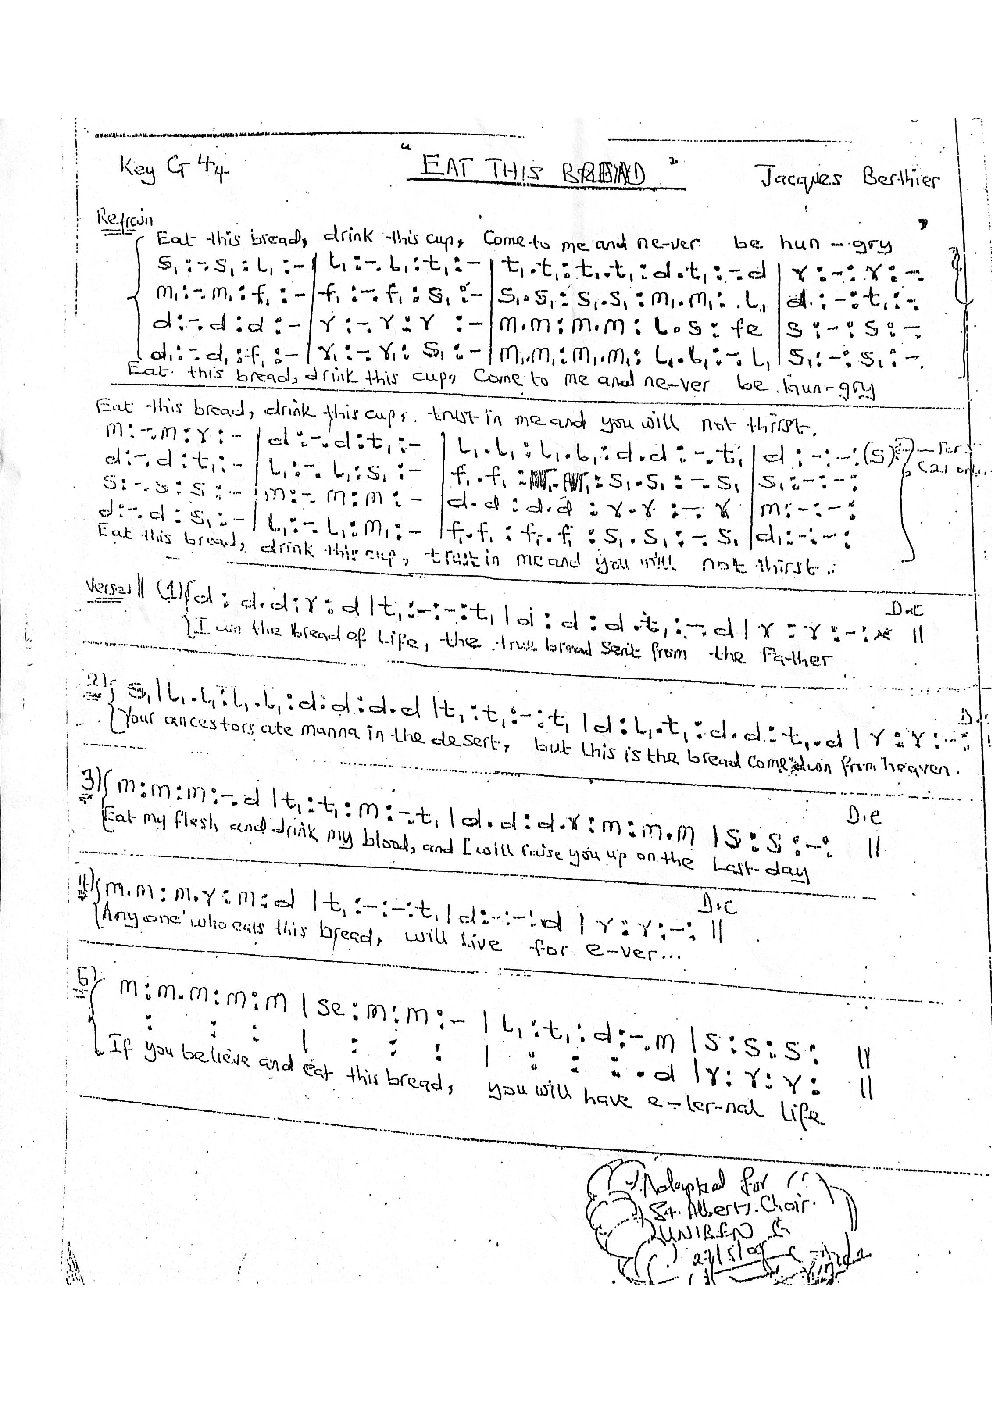 Key G 4/4 "EAT THIS BREAD" Jacques Berthier
Refrain
Eat this bread, drink this cup, Come to me and ne-ver be hun-gry
s₁:-.s₁:l₁:-|l₁:-.l₁:t₁:-|t₁.t₁:t₁.t₁:d.t₁:-.d|r:-:r:-
m₁:-.m₁:f₁:-|f₁:-.f₁:s₁:-|s₁.s₁:s₁.s₁:m₁.m₁:.l₁|d:-:t₁:-
d:-.d:d:-|r:-.r:r:-|m.m:m.m:l.s:fe|s:-:s:-
d₁:-.d₁:f₁:-|r₁:-.r₁:s₁:-|m₁.m₁:m₁.m₁:l₁.l₁:-.l₁|s₁:-:s₁:-
Eat this bread, drink this cup, Come to me and ne-ver be hun-gry
Eat this bread, drink this cup, trust in me and you will not thirst.
m:-.m:r:-|d:-.d:t₁:-|l₁.l₁:l₁.l₁:d.d:-.t₁|d:-:-:(s)
d:-.d:t₁:-|l₁:-.l₁:s₁:-|f₁.f₁:s₁.s₁:-.s₁|s₁:-:-:
s:-.s:s:-|m:-.m:m:-|d.d:d.d:r.r:-.r|m:-:-:
d:-.d:s₁:-|l₁:-.l₁:m₁:-|f₁.f₁:f₁.f₁:s₁.s₁:-.s₁|d₁:-:-:
Eat this bread, drink this cup, trust in me and you will not thirst.
Verses || (1) d:d.d:r:d|t₁:-:-:t₁|d:d:d.t₁:-.d|r:r:-: D.C ||
I am the bread of life, the true bread sent from the Father
2) s₁|l₁.l₁:l₁.l₁:d:d:d.d|t₁:t₁:-:t₁|d:l₁.t₁:d.d:t₁.d|r:r:-: D.
Your ancestors ate manna in the desert, but this is the bread come down from heaven.
3) m:m:m:-.d|t₁:t₁:m:-.t₁|d.d:d.r:m:m.m|s:s:-: D.C ||
Eat my flesh and drink my blood, and I will raise you up on the last-day
4) m.m:m.r:m:d|t₁:-:-:t₁|d:-:-:d|r:r:-: D.C ||
Anyone who eats this bread, will live for e-ver...
5) m:m.m:m:m|se:m:m:-|l₁:t₁:d:-.m|s:s:s: ||
: : :|: : :|: : :.d|r:r:r: ||
If you believe and eat this bread, you will have e-ter-nal life
Adapted for
St. Alberts Choir
UNIBEN